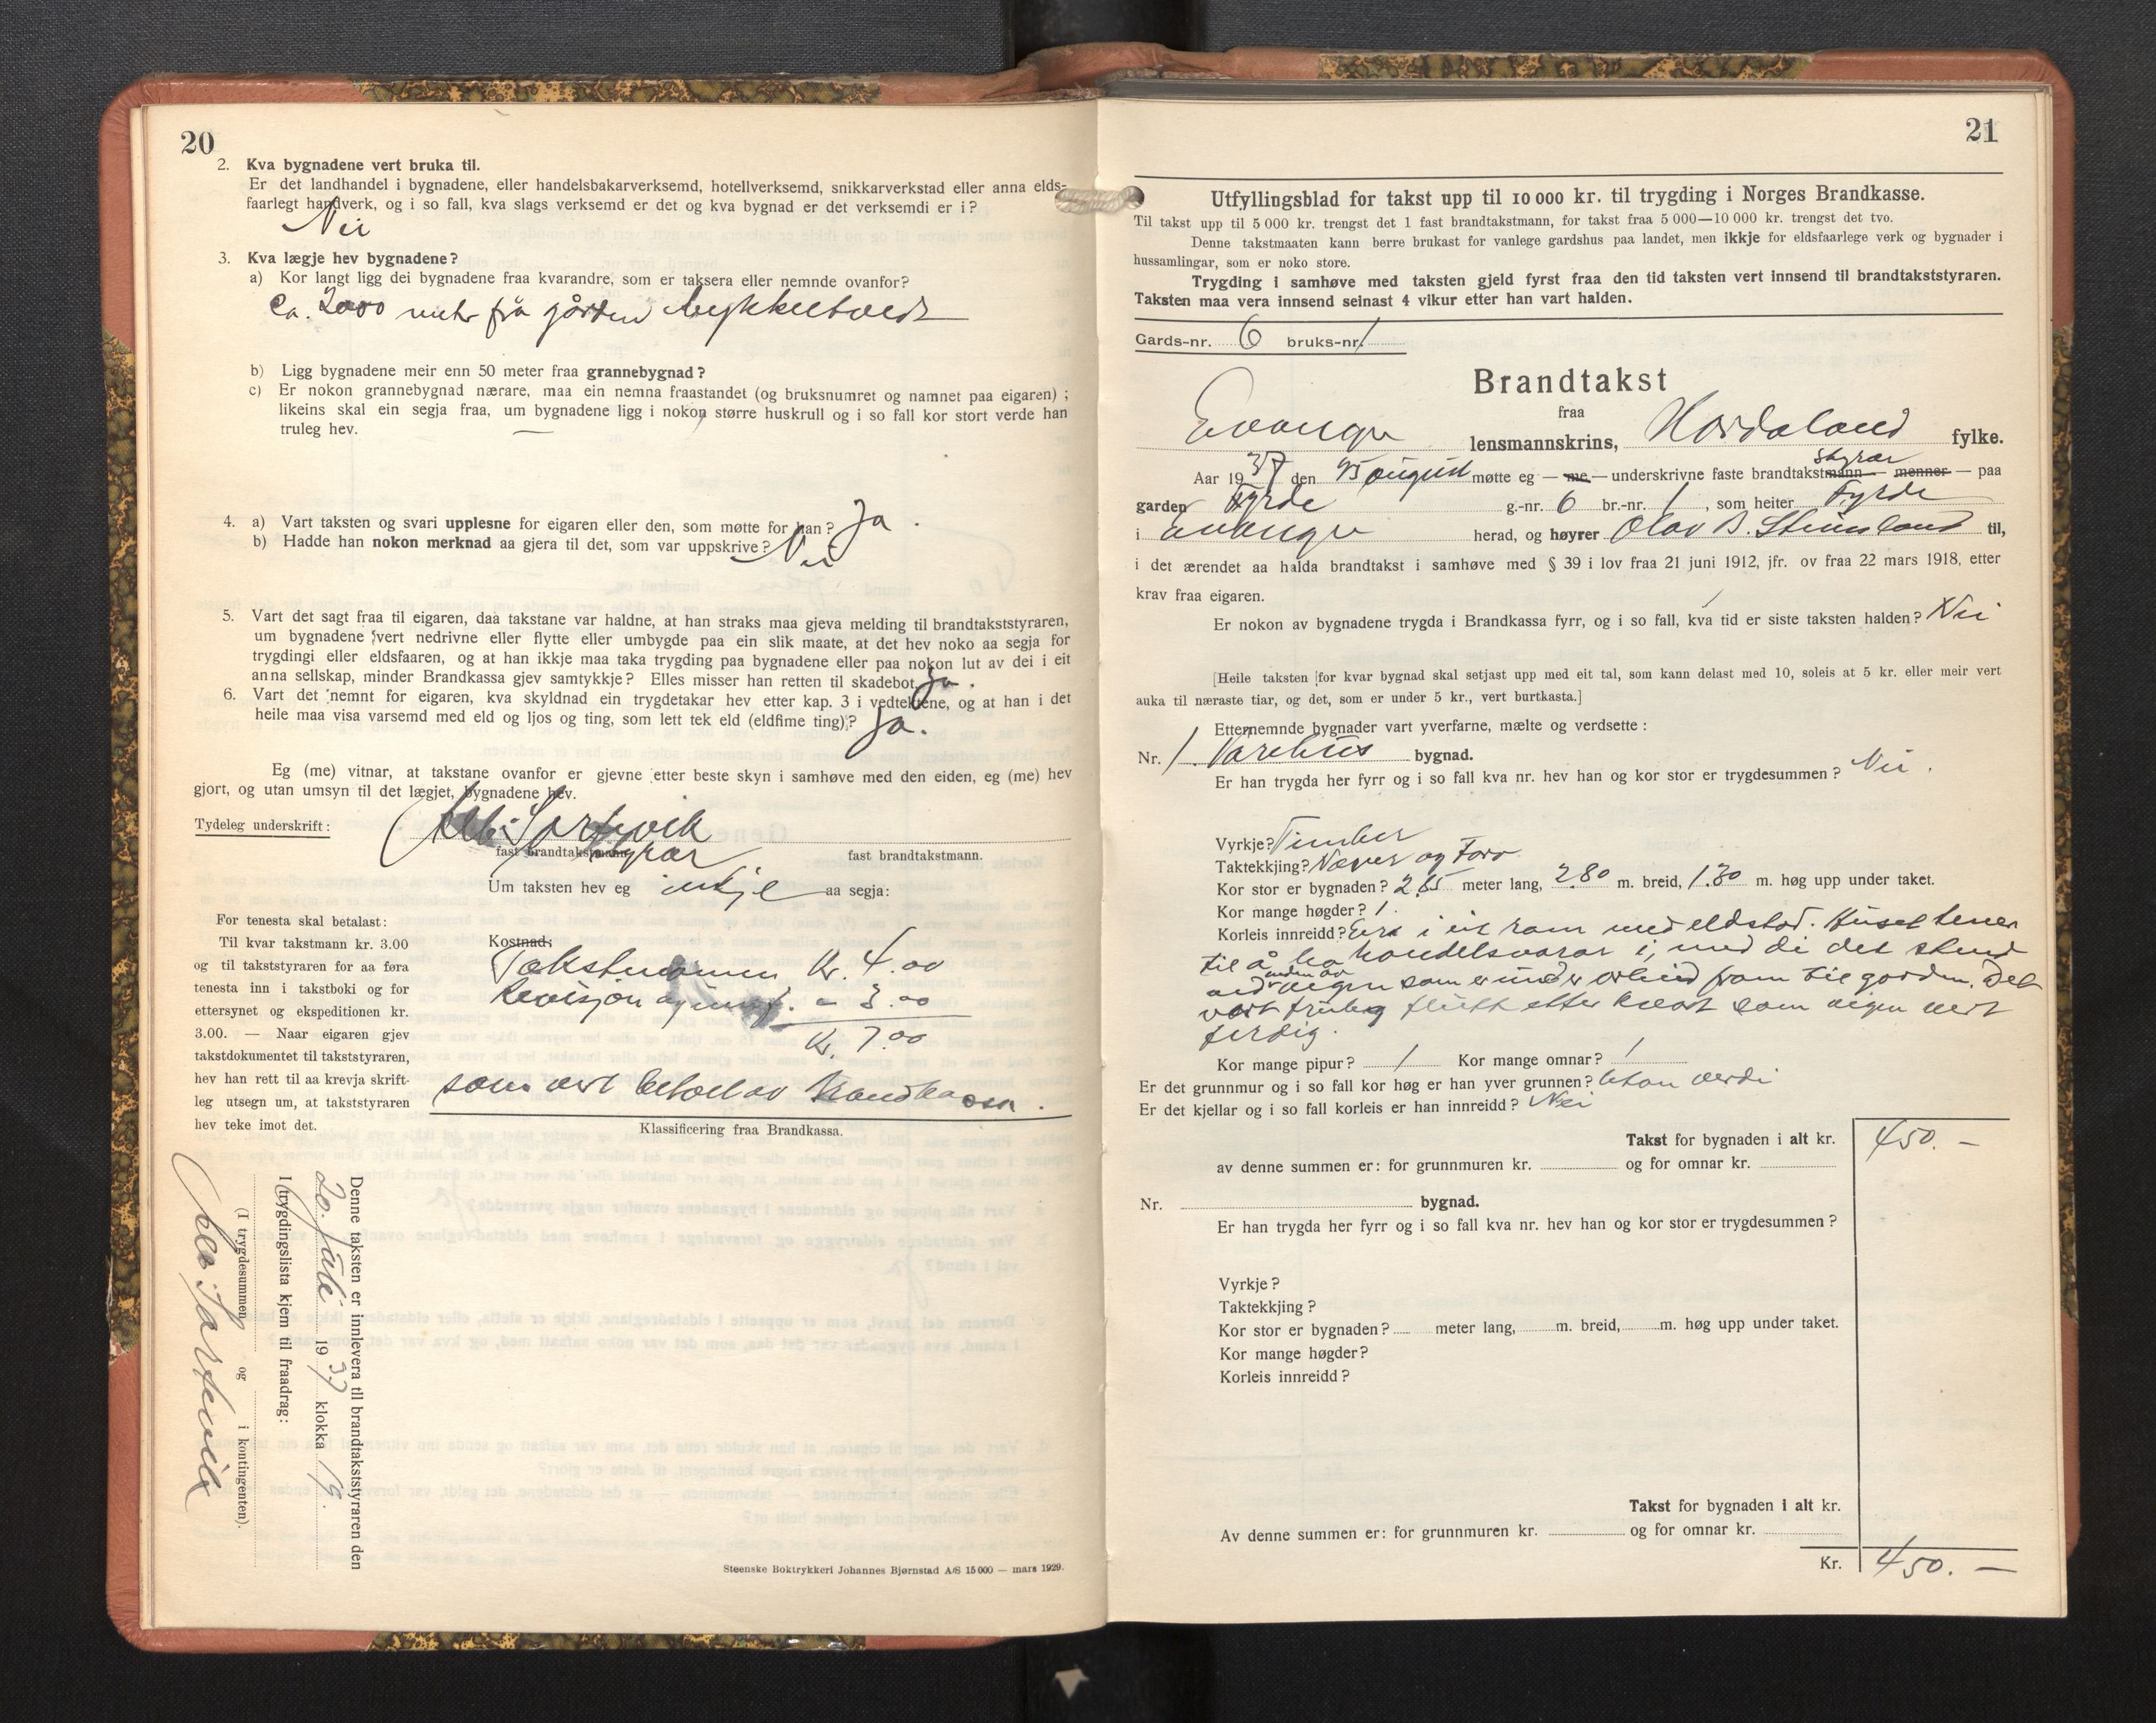 20
2. Kva bygnadene vert bruka til.
Er det landhandel i bygnadene, eller handelsbakarverksemd, hotellverksemd, snikkarverkstad eller anna elds-
faarlegt handverk, og i so fall, kva slags verksemd er det og kva bygnad er det verksemdi er i?
Nei
3. Kva lægje hev bygnadene?
a) Kor langt ligg dei bygnadene fraa kvarandre, som er taksera eller nemnde ovanfor?
Ca. 2000 meter frå gården
b) Ligg bygnadene meir enn 50 meter fraa grannebygnad?
c) Er nokon grannebygnad nærare, maa ein nemna fraastandet (og bruksnumret og namnet paa eigaren) ;
likeins skal ein segja fraa, um bygnadene ligg i nokon større huskrull og i so fall kor stort verde han
truleg hev. —
4. a) Vart taksten og svari upplesne for eigaren eller den, som møtte for han? Ja.
b) Hadde han nokon merknad aa gjera til det, som var uppskrive? Nei
5. Vart det sagt fraa til eigaren, daa takstane var haldne, at han straks maa gjeva melding til brandtakststyraren,
um bygnadene vert nedrivne eller flytte eller umbygde paa ein slik maate, at det hev noko aa segja for
trygdingi eller eldsfaaren, og at han ikkje maa taka trygding paa bygnadene eller paa nokon lut av dei i eit
anna sellskap, minder Brandkassa gjev samtykkje? Elles misser han retten til skadebot. Ja.
6. Vart det nemnt for eigaren, kva skyldnad ein trygdetakar hev etter kap. 3 i vedtektene, og at han i det
heile maa visa varsemd med eld og ljos og ting, som lett tek eld (eldfime ting)? Ja.
Eg (me) vitnar, at takstane ovanfor er gjevne etter beste skyn i samhøve med den eiden, eg (me) hev
gjort, og utan umsyn til det lægjet, bygnadene hev.
Tydeleg underskrift: Sortevik
fast brandtakstmann styrar. fast brandtakstmann.
Um taksten hev eg inkje aa segja:
For tenesta skal betalast:
Til kvar takstmann kr. 3.00
og til takststyraren for aa føra
tenesta inn i takstboki og for
ettersynet og ekspeditionen kr.
3.00. — Naar eigaren gjev
takstdokumentet til takststyraren,
hev han rett til aa krevja skrift-
leg utsegn um, at takststyraren
hev teke imot det.
Kostnad:
Takstmannen Kr. 4.00
Revisjon og - 3.00
Kr. 7.00
som vert betalt av Brandkassa.
Klassificering fraa Brandkassa.
Denne taksten er innlevera til brandtakststyraren den
20. juli 1937 klokka 19.
I trygdingslista kjem til fraadrag:
(I trygdesummen) og i kontingenten).
Sortevik
Steenske Boktrykkeri Johannes Bjørnstad A/S 15000 — mars 1929.
21
Utfyllingsblad for takst upp til 10 000 kr. til trygding i Norges Brandkasse.
Til takst upp til 5 000 kr. trengst det 1 fast brandtakstmann, for takst fraa 5 000—10 000 kr. trengst det tvo.
Denne takstmaaten kann berre brukast for vanlege gardshus paa landet, men ikkje for eldsfaarlege verk og bygnader i
hussamlingar, som er noko store.
Trygding i samhøve med taksten gjeld fyrst fraa den tid taksten vert innsend til brandtakststyraren.
Taksten maa vera innsend seinast 4 vikur etter han vart halden.
Gards-nr. 6 bruks-nr. 1
Brandtakst
fraa
Evanger lensmannskrins, Hordaland fylke.
Aar 1937 den 15 august møtte eg — me — underskrivne faste brandtakstmann styrar — menner — paa
garden Fyrde g.-nr. 6 br.-nr. 1, som heiter Fyrde
i Evanger herad, og høyrer Olav B. Steinsland til,
i det ærendet aa halda brandtakst i samhøve med § 39 i lov fraa 21 juni 1912, jfr. ov fraa 22 mars 1918, etter
krav fraa eigaren.
Er nokon av bygnadene trygda i Brandkassa fyrr, og i so fall, kva tid er siste taksten halden? Nei
[Heile taksten for kvar bygnad skal setjast upp med eit tal, som kann delast med 10, soleis at 5 kr. eller meir vert
auka til næraste tiar, og det, som er under 5 kr., vert burtkasta.]
Etternemnde bygnader vart yverfarne, mælte og verdsette :
Nr. 1. Varehus bygnad.
Er han trygda her fyrr og i so fall kva nr. hev han og kor stor er trygdesummen? Nei.
Vyrkje? Timber
Taktekkjing? Never og Torv
Kor stor er bygnaden? 2.85 meter lang, 2.80 m. breid, 1.80 m. høg upp under taket.
Kor mange høgder? 1.
Korleis innreidd? Er i eit rom med eldstad. Huset tener
til å ha handelsvarar i, med di det stend
ved enden av veigen som er under arbeid fram til garden. Det
vert truleg flutt etter kvart som veigen vert
ferdig.
Kor mange pipur? 1 Kor mange omnar? 1
Er det grunnmur og i so fall kor høg er han yver grunnen? Utan verdi
Er det kjellar og i so fall korleis er han innreidd? Nei
Takst for bygnaden i alt kr. 450.—
av denne summen er: for grunnmuren kr. og for omnar kr.
Nr. bygnad.
Er han trygda her fyrr og i so fall kva nr. hev han og kor stor er trygdesummen?
Vyrkje?
Taktekkjing?
Kor stor er bygnaden? meter lang, m. breid, m. høg upp under taket.
Kor mange høgder?
Korleis innreidd?
Takst for bygnaden i alt kr.
Av denne summen er: for grunnmuren kr. og for omnar kr.
Kr. 450.—